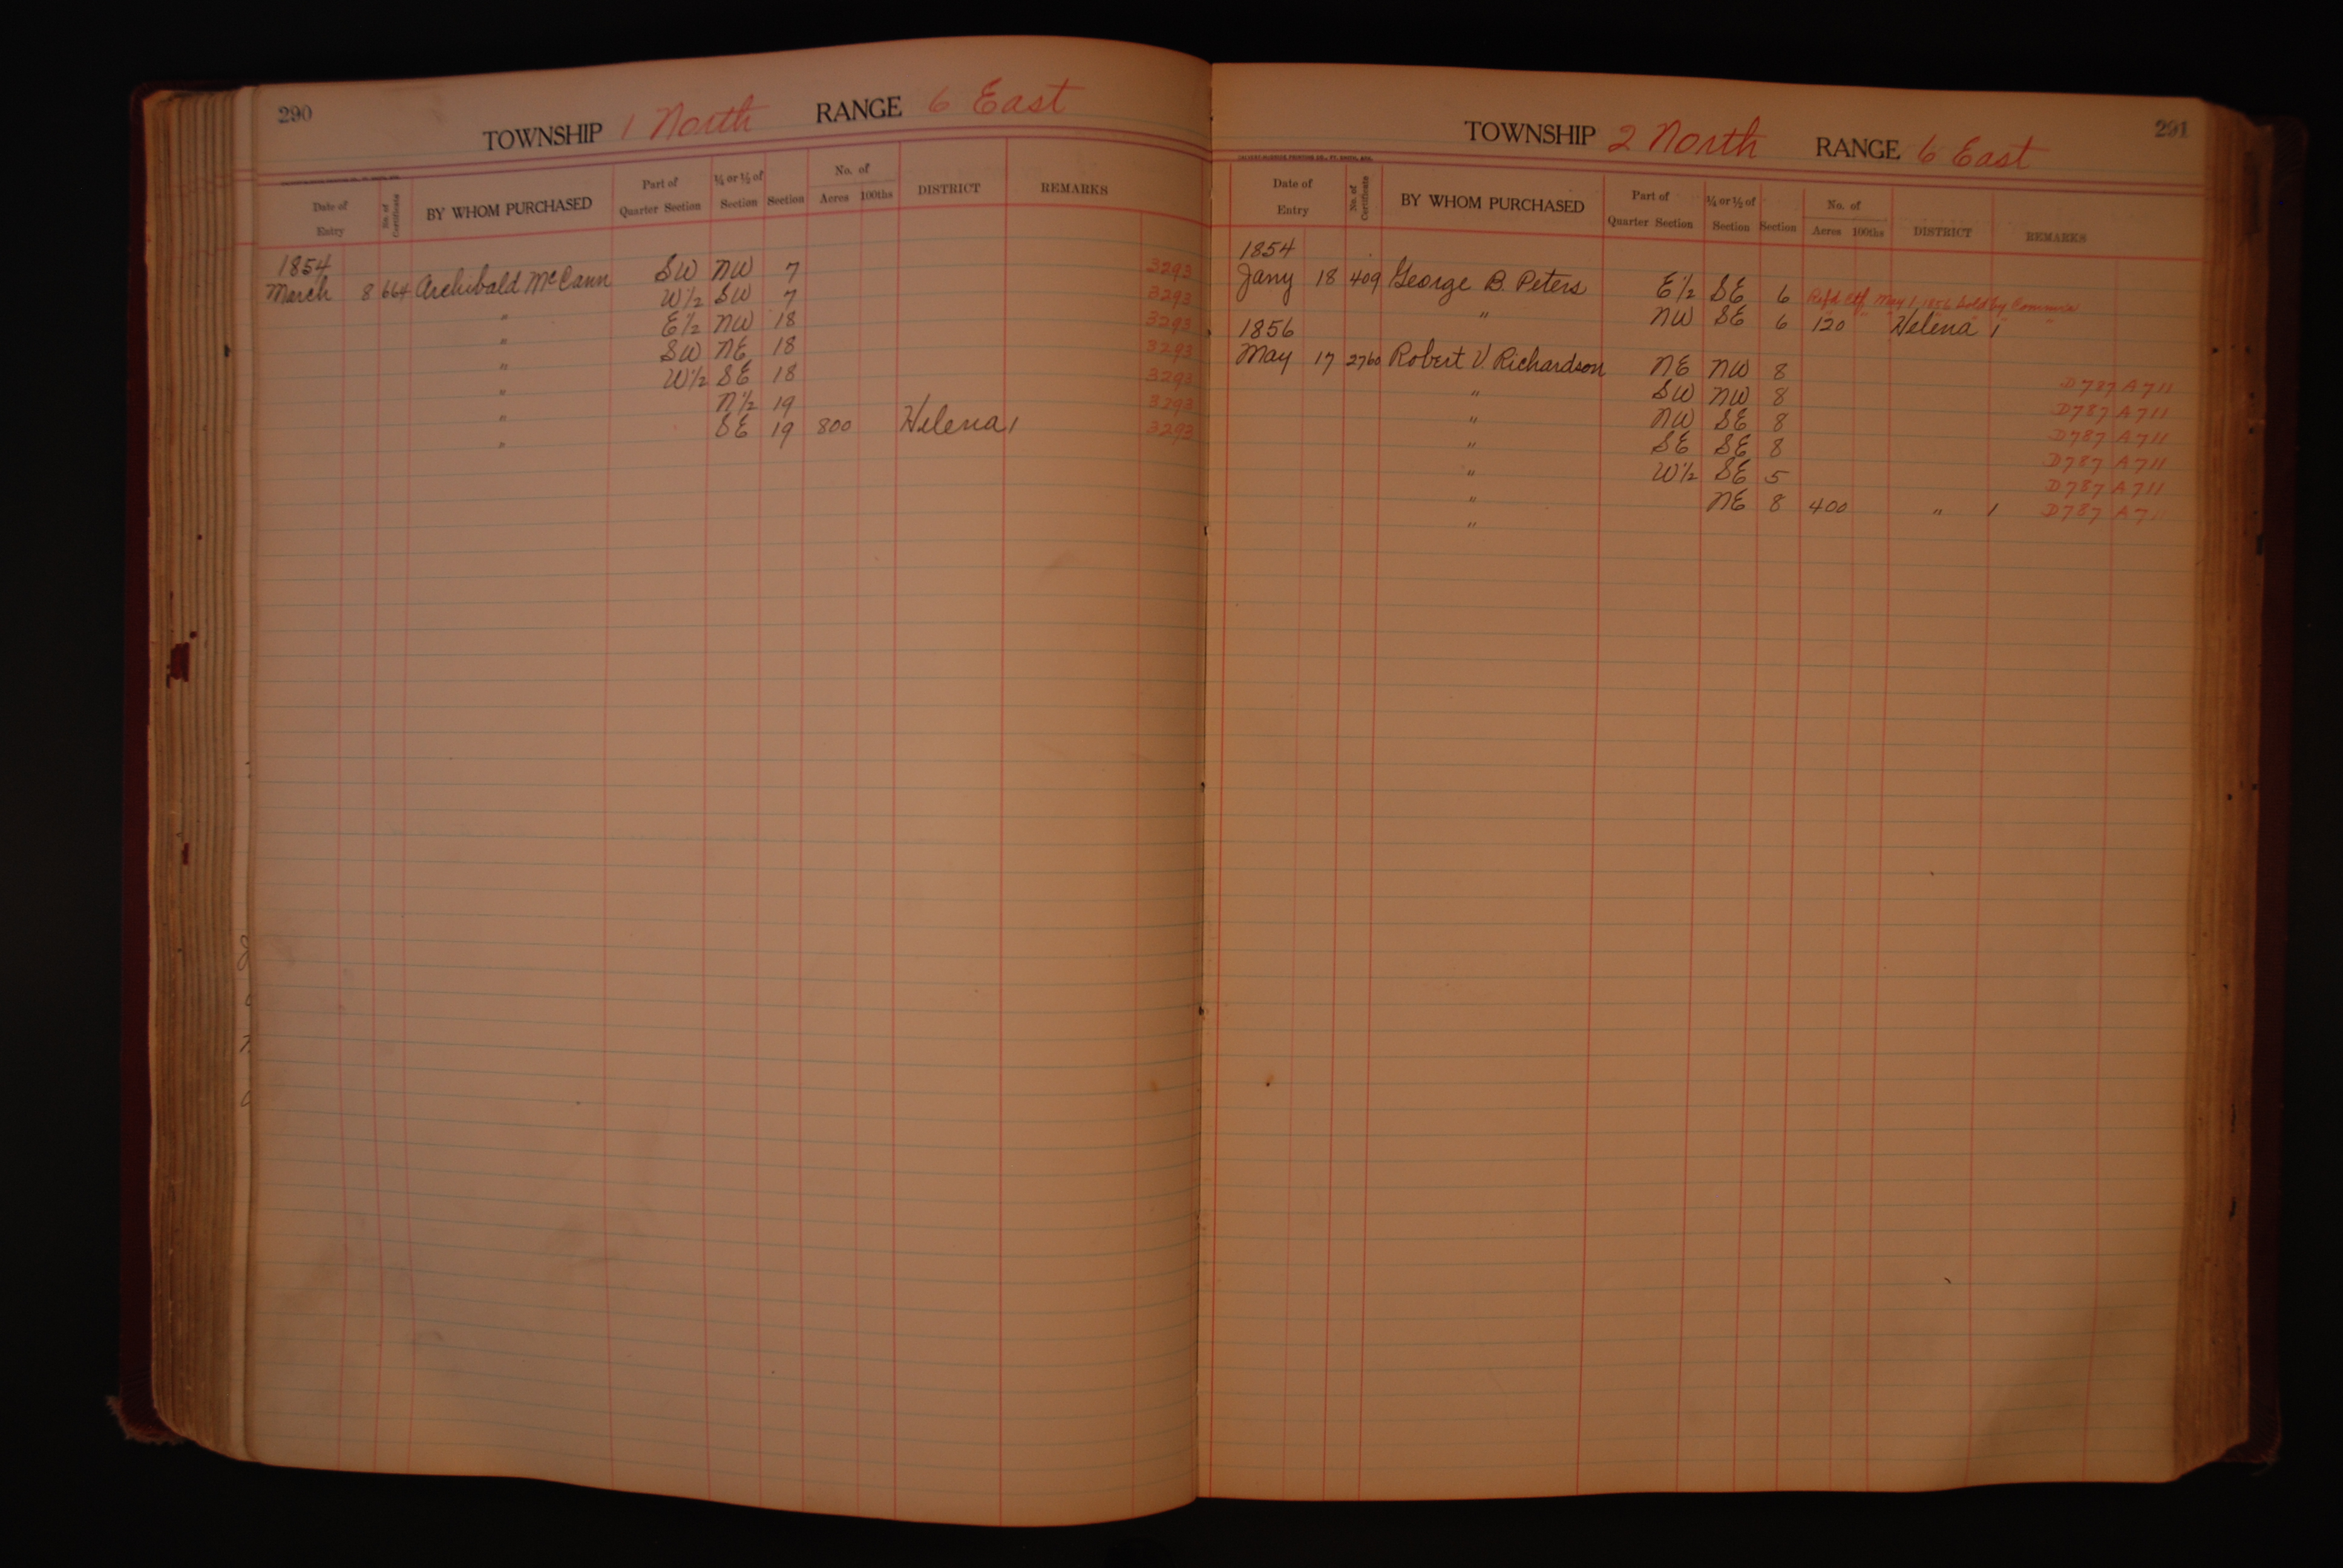 290
TOWNSHIP 1 North RANGE 6 East
Date of Entry No. of Certificate BY WHOM PURCHASED Part of Quarter Section ¼ or ½ of Section Section No. of Acres 100ths DISTRICT REMARKS
1854
March 8 664 Archibald McCann SW NW 7 3293
" W½ SW 7 3293
" E½ NW 18 3293
" SW NE 18 3293
" W½ SE 18 3293
" N½ 19 3293
" SE 19 800 Helena 1 3293
291
TOWNSHIP 2 North RANGE 6 East
Date of Entry No. of Certificate BY WHOM PURCHASED Part of Quarter Section ¼ or ½ of Section Section No. of Acres 100ths DISTRICT REMARKS
1854
Jany 18 409 George B. Peters E½ SE 6 May 1, 1856 sold by
" NW SE 6 120 Helena 1
1856
May 17 2760 Robert V. Richardson NE NW 8 D787 A711
" SW NW 8 D787 A711
" NW SE 8 D787 A711
" SE SE 8 D787 A711
" W½ SE 5 D787 A711
" NE 8 400 " 1 D787 A7
"